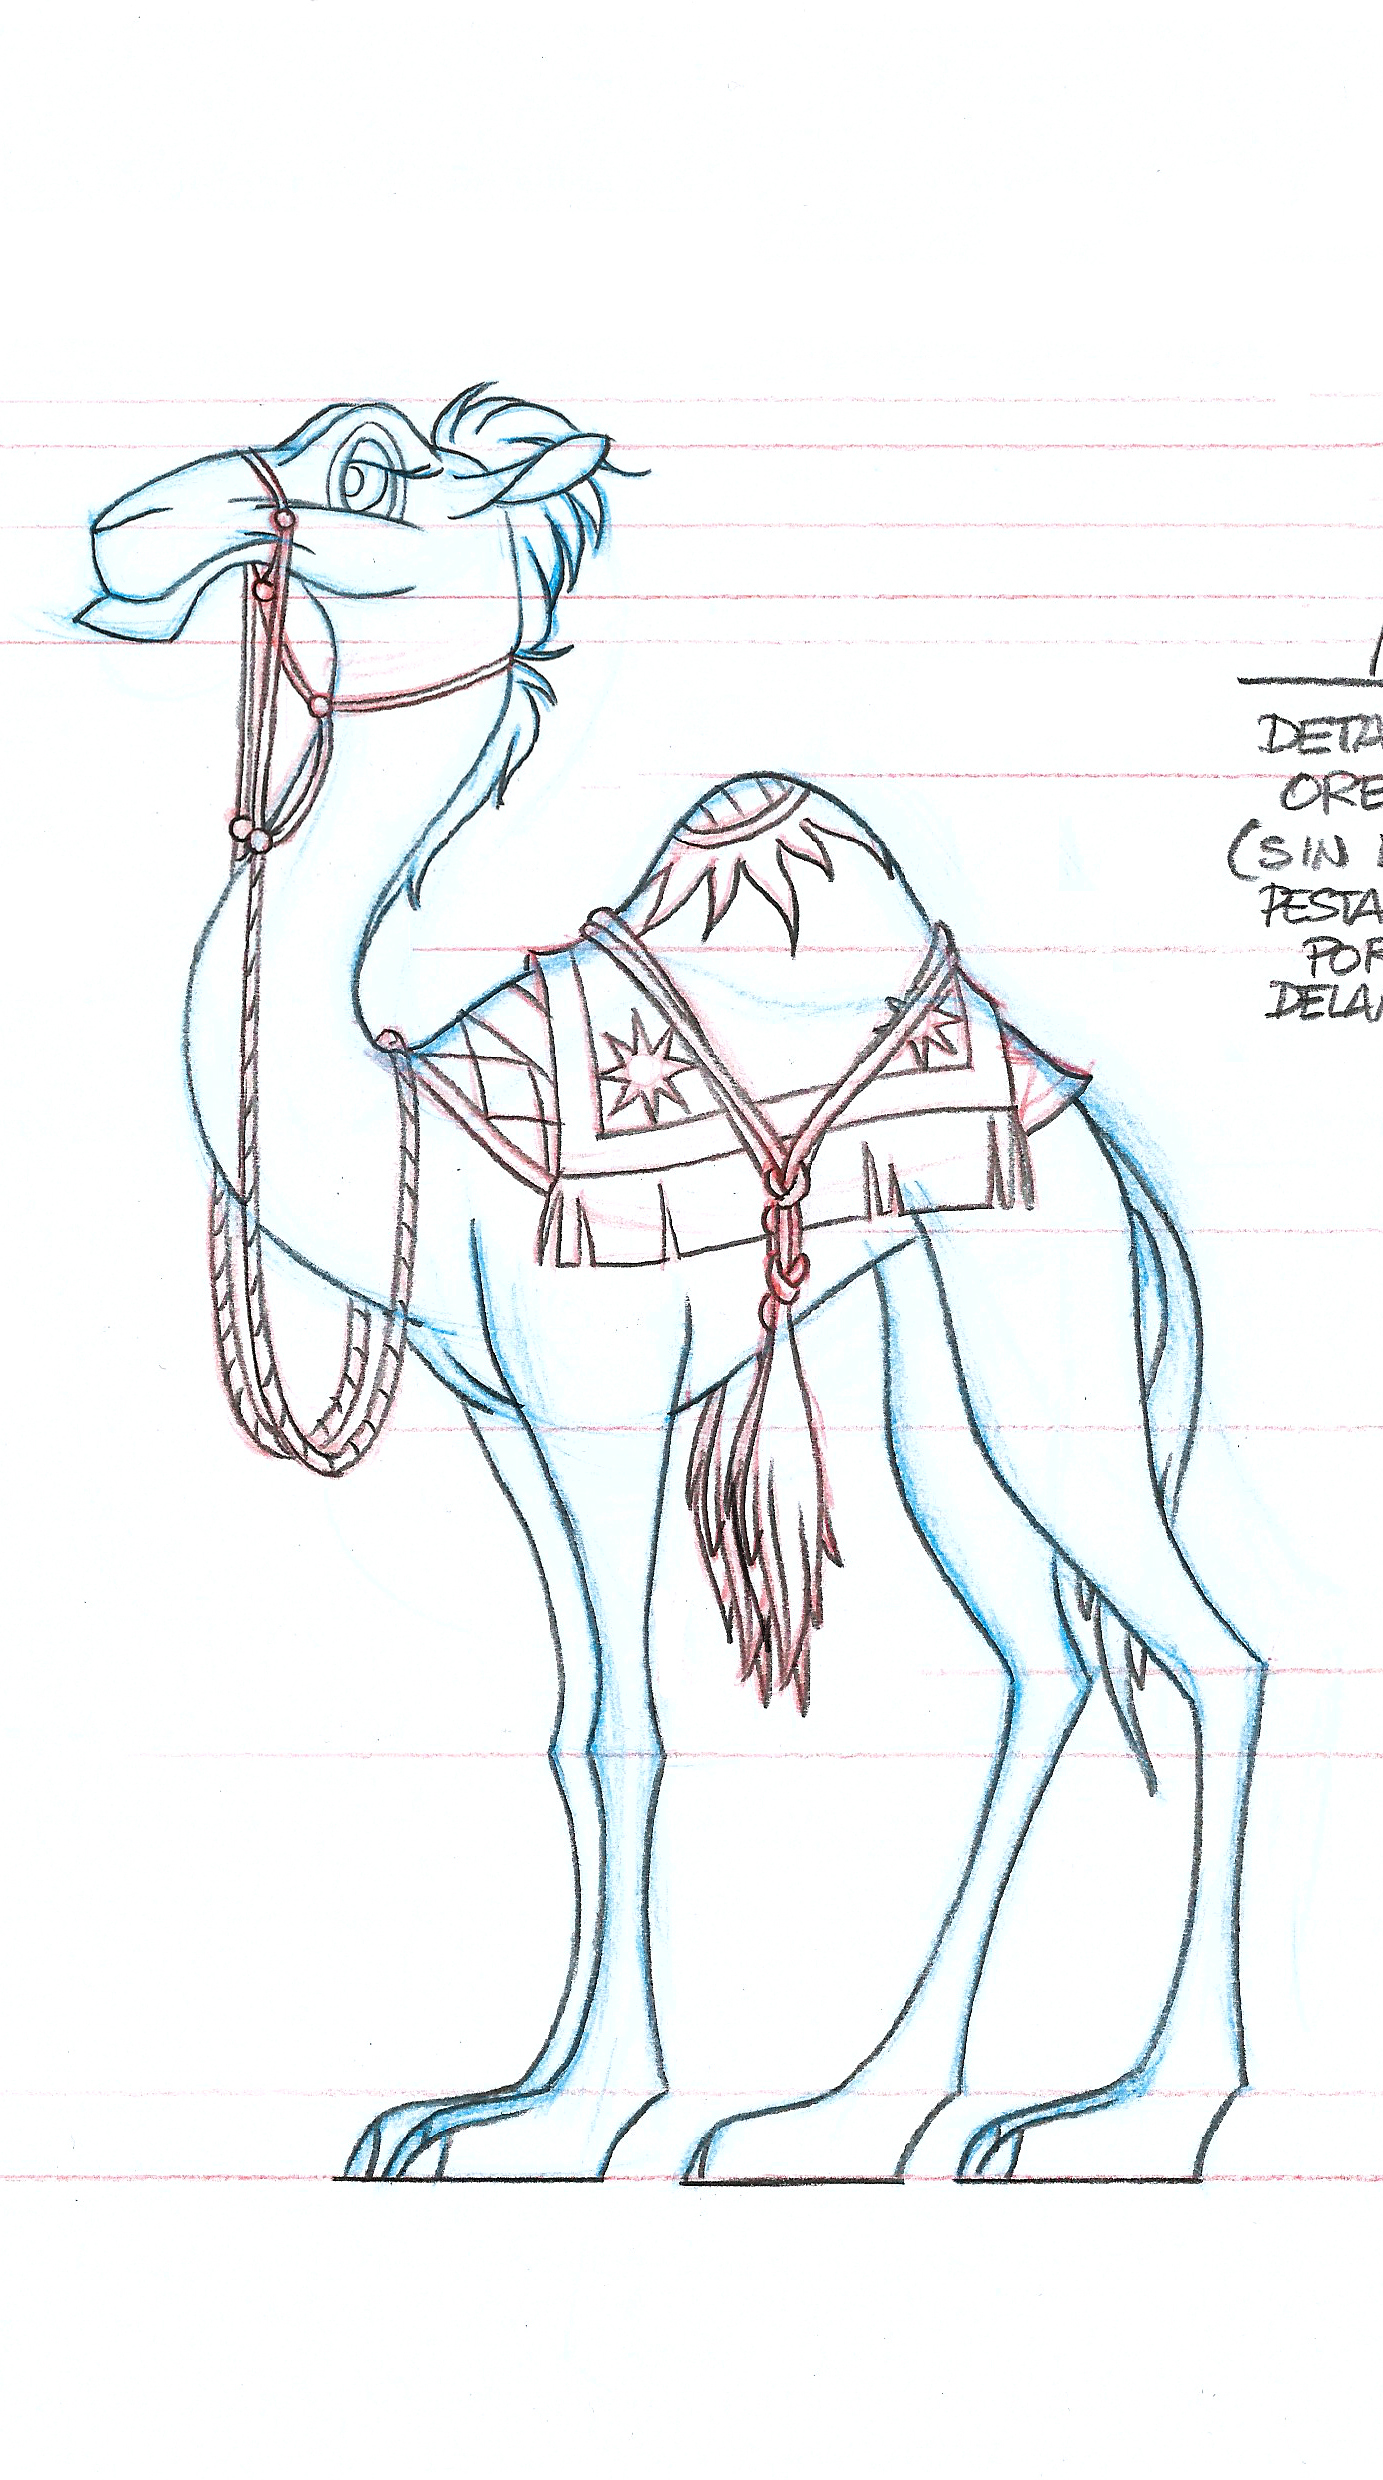 DETA
ORE
(SIN
PESTA
POR
DELA